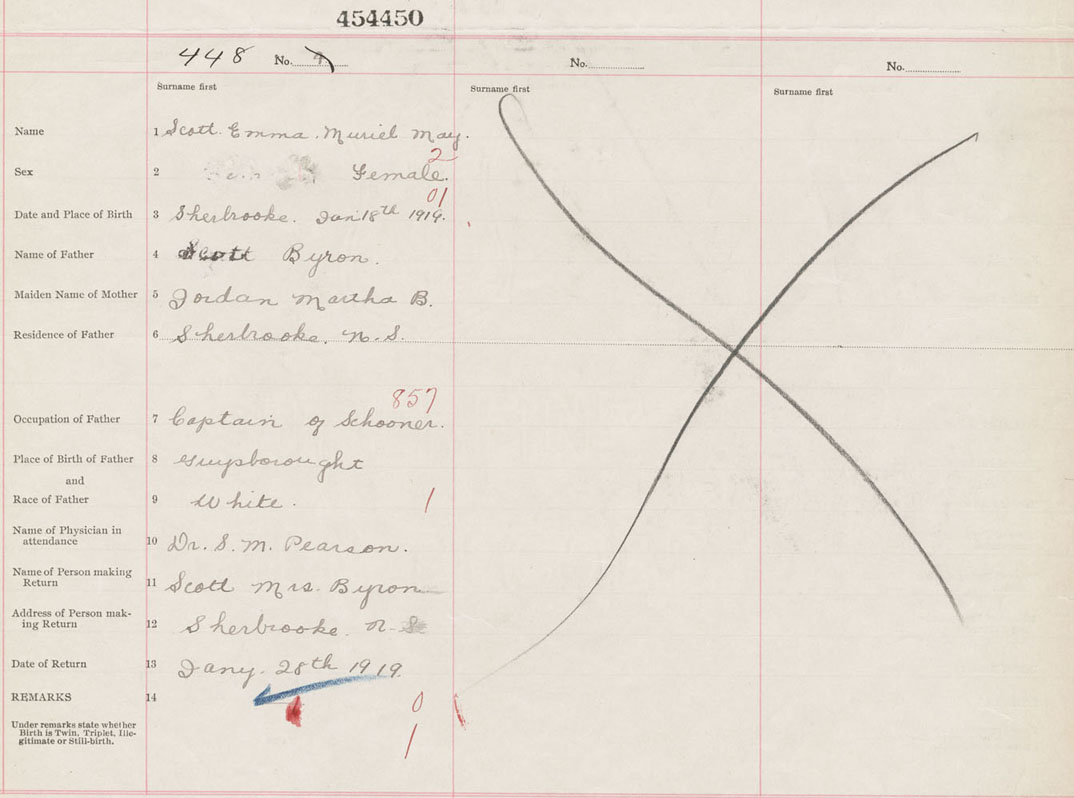 454450
448 No. No. No.
Surname first Surname first Surname first
Name 1 Scott. Emma. Muriel May.
2
Sex 2 Female.
01
Date and Place of Birth 3 Sherbrooke. Jan 18th 1919.
Name of Father 4 Scott Byron.
Maiden Name of Mother 5 Jordan Martha B.
Residence of Father 6 Sherbrooke. N. S.
857
Occupation of Father 7 Captain of Schooner.
Place of Birth of Father 8 Guysborought
and
Race of Father 9 White. 1
Name of Physician in
attendance 10 Dr. S. M. Pearson.
Name of Person making
Return 11 Scott Mrs. Byron
Address of Person mak-
ing Return 12 Sherbrooke. N. S.
Date of Return 13 Jany. 28th 1919.
REMARKS 14 0
Under remarks state whether
Birth is Twin, Triplet, Ille-
gitimate or Still-birth.
1